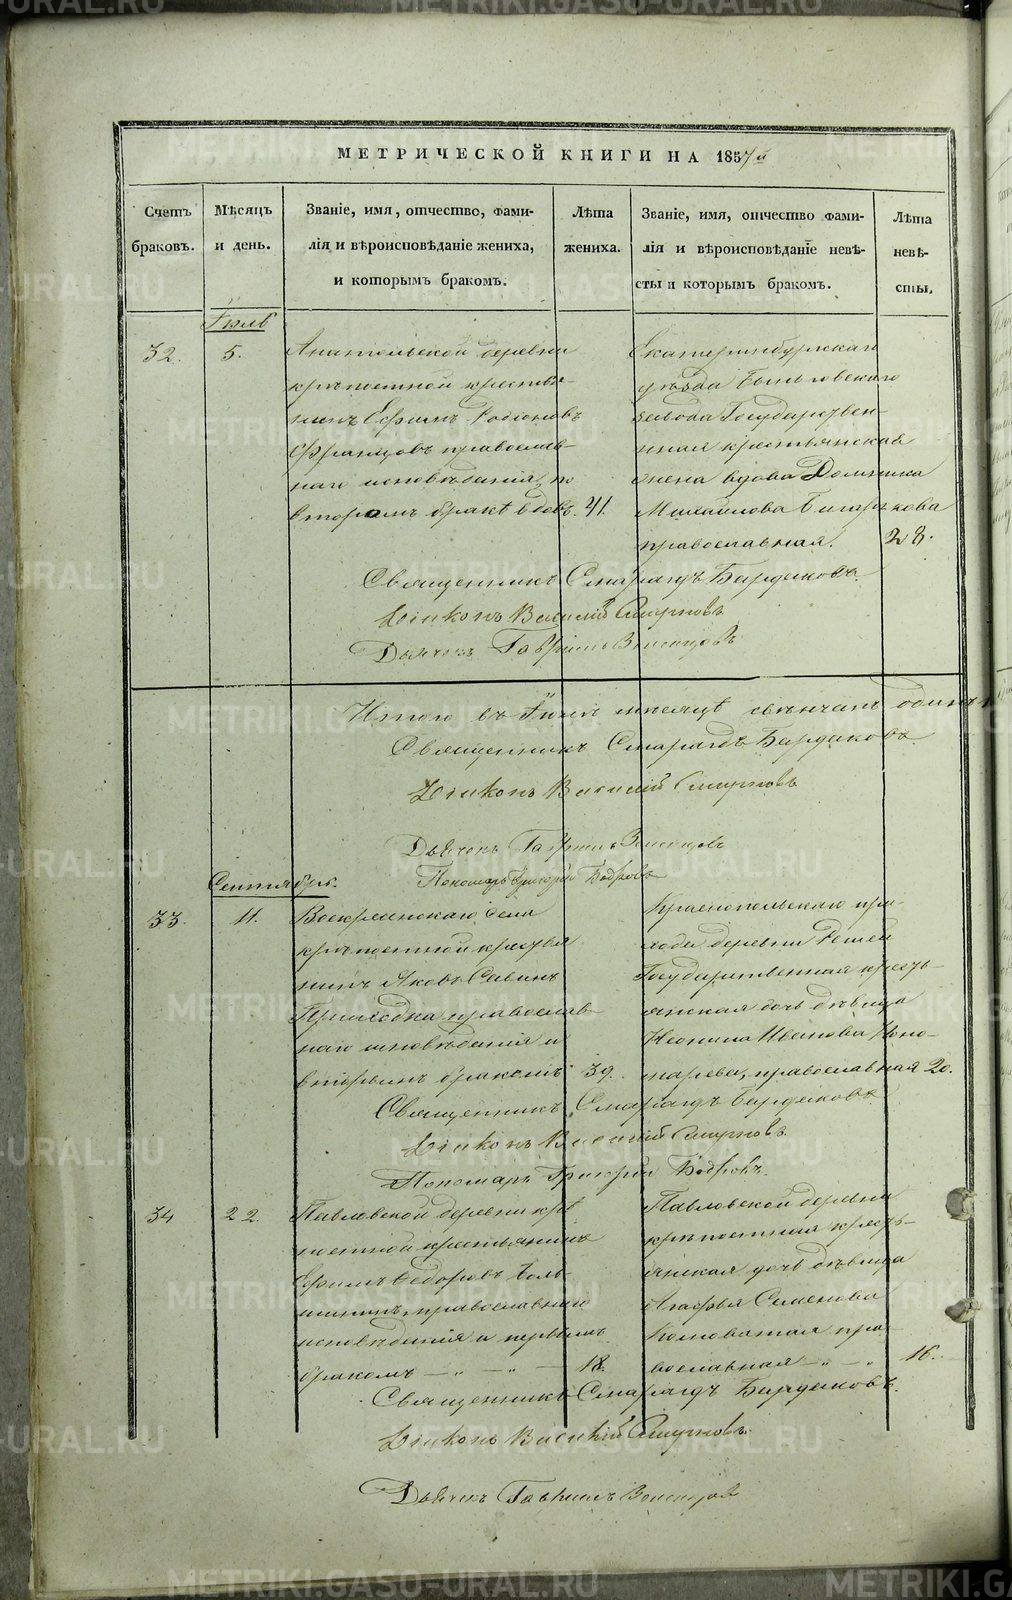 МЕТРИЧЕСКОЙ КНИГИ НА 1857й
Счетъ браковъ.
Мѣсяцъ и день.
Званіе, имя, отчество, фами-
лія и вѣроисповѣданіе жениха,
и которымъ бракомъ.
Лѣта жениха.
Званіе, имя, отчество фами-
лія и вѣроисповѣданіе невѣ-
сты и которымъ бракомъ.
Лѣта невѣ-
сты.
Іюль
32. 5.
Анатольской деревни
крѣпостной крестья-
нинъ Ефимъ Родіоновъ
православ-
наго исповѣданія, по
вторымъ бракѣ вдовъ. 41.
Екатеринбургскаго
уѣзда Быньговскаго
завода Государствен-
ная крестьянская
жена вдова Домника
Михайлова
православная. 28.
Священникъ Смарагдъ Бардаковъ.
Діаконъ Василій Смирновъ
Дьячекъ Гавріилъ
Итого въ Іюлѣ мѣсяцѣ свѣнчанъ одинъ
Священникъ Смарагдъ Бардаковъ.
Діаконъ Василій Смирновъ
Дьячекъ Гавріилъ
Пономарь Григорій Бобровъ
Сентябрь.
33. 11.
Воскресенскаго села
крѣпостной крестья
нинъ Яковъ Савинъ
православ-
наго исповѣданія и
вторымъ бракомъ 39.
Краснопольскаго при-
хода деревни
Государственная кресть-
янская дочь дѣвица
Неонила Иванова Поно-
марева, православная 20.
Священникъ Смарагдъ Бардаковъ
Діаконъ Василій Смирновъ
Пономарь Григорій Бобровъ.
34 22.
Павловской деревни крѣ
постной крестьянинъ
Ефимъ Ѳедоровъ
православнаго
исповѣданія и первымъ
бракомъ — „ — „ — 18.
Павловской деревни
крѣпостная кресть-
янская дочь дѣвица
Агафья Семенова
пра-
вославная — „ — „ 16.
Священникъ Смарагдъ Бардаковъ.
Діаконъ Василій Смирновъ.
Дьячекъ Гавріилъ
METRIKI.GASO-URAL.RU